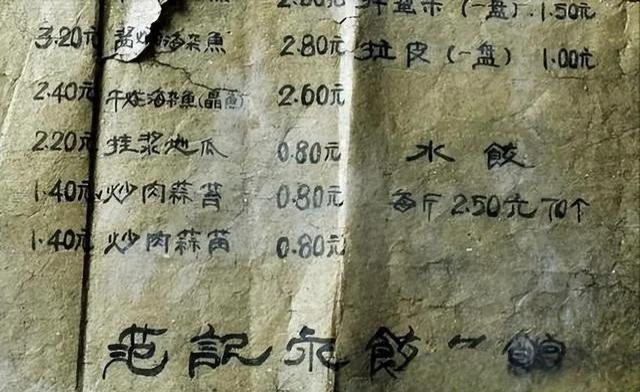 2.80元 拌鱼米(一盘).1.50元
3.20元 酱炆海杂魚 2.80元 拉皮(一盘) 1.00元
2.40元 干烂海杂魚(晶魚) 2.60元
2.20元 挂浆地瓜 0.80元 水餃
1.40元 炒肉蒜苔 0.80元 每斤2.50元70个
1.40元 炒肉蒜苗 0.80元
范記永餃